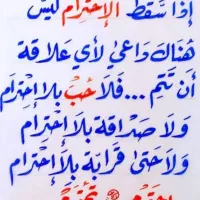 إِذَا سَقَطَ الإِحْتِرَام لَيْسَ
هُنَاكَ دَاعِي لِأَي عَلَاقَة
أَنْ تَتَمِ ... فَلَا حُبْ بِلَا إِحْتِرَامْ
وَلَا صَدَاقَة بِلَا إِحْتِرَام
وَلَا حَتَى قَرَابَة بِلَا إِحْتِرَام